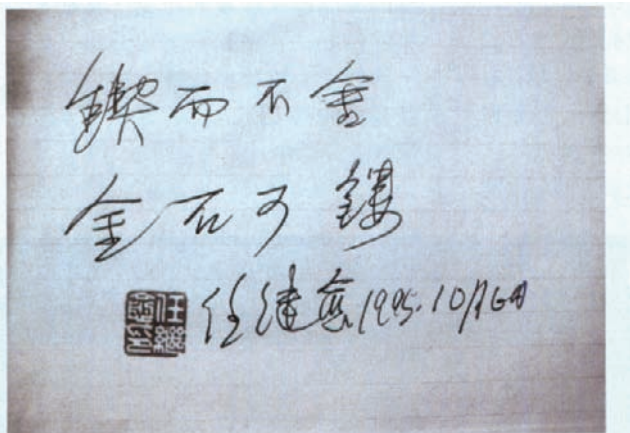 锲而不舍
金石可镂
任继愈 1995.10月6日
任繼愈印